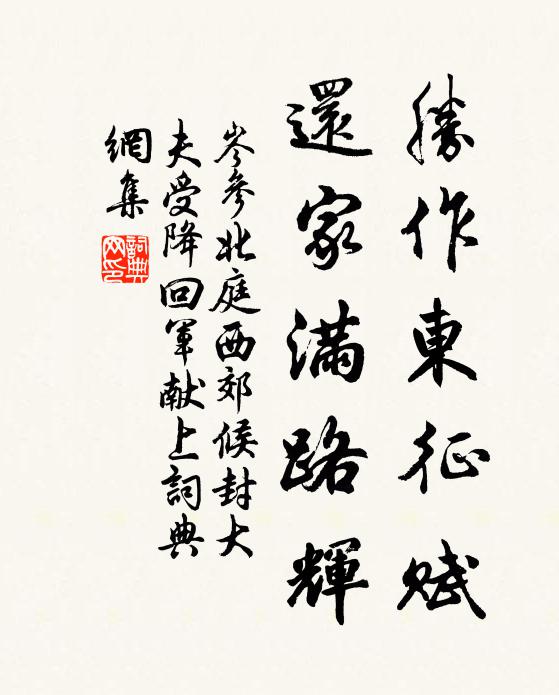 勝作東征賦
還家滿路輝
岑參北庭西郊候封大
夫受降回軍献上詞典
網集
詞典
网印